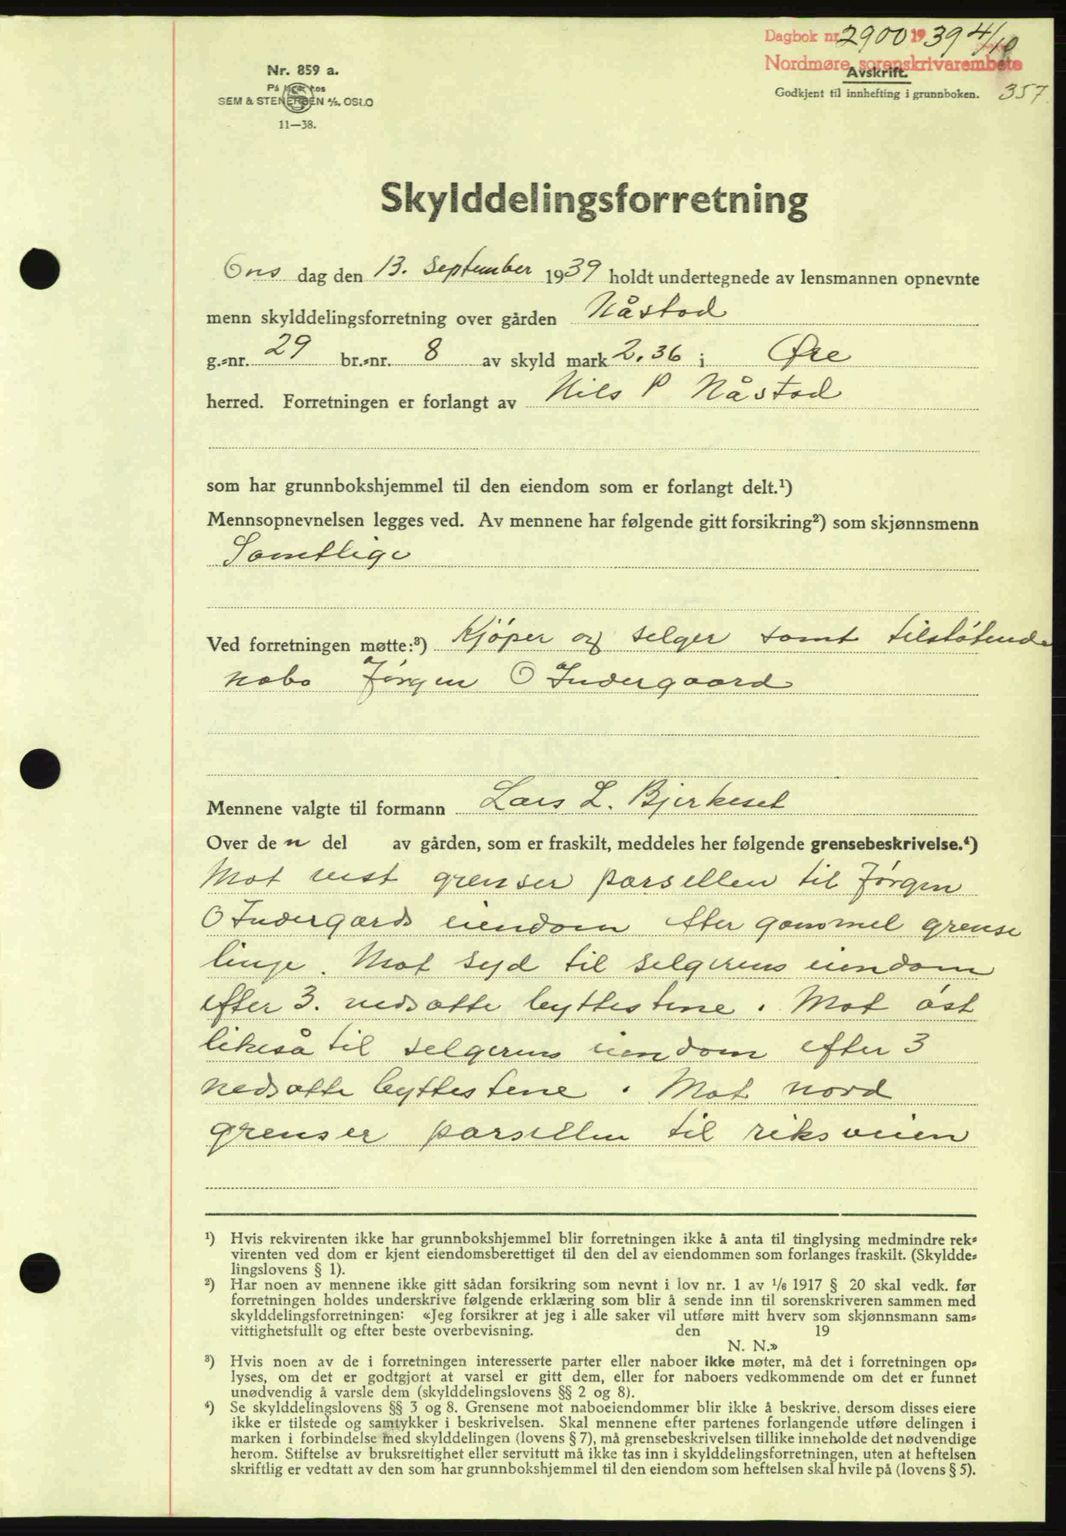 Dagbok nr. 2900 1939 4/10
Nordmøre sorenskrivarembete
Avskrift.
Godkjent til innhefting i grunnboken. 357
Nr. 859 a.
SEM & STENERSEN A/S. OSLO
11—38.
Skylddelingsforretning
Ons dag den 13. September 1939 holdt undertegnede av lensmannen opnevnte
menn skylddelingsforretning over gården Nåstad
g.-nr. 29 br.-nr. 8 av skyld mark 2,36 i Øre
herred. Forretningen er forlangt av Nils P Nåstad
som har grunnbokshjemmel til den eiendom som er forlangt delt.¹)
Mennsopnevnelsen legges ved. Av mennene har følgende gitt forsikring²) som skjønnsmenn
Samtlige
Ved forretningen møtte:³) Kjóper og selger samt tilstótende
nabo Jórgen O Indergaard
Mennene valgte til formann Lars L. Bjerkeset
Over de n del av gården, som er fraskilt, meddeles her følgende grensebeskrivelse.⁴)
Mot vest grenser parsellen til Jórgen
O Indergards eiendom efter gammel grense
linje. Mot syd til selgerens eiendom
efter 3. nedsatte byttestene. Mot óst
likeså til selgerens eiendom efter 3
nedsatte byttestene. Mot nord
grenser parsellen til riksveien
¹) Hvis rekvirenten ikke har grunnbokshjemmel blir forretningen ikke å anta til tinglysing medmindre rek-
virenten ved dom er kjent eiendomsberettiget til den del av eiendommen som forlanges fraskilt. (Skyldde-
lingslovens § 1).
²) Har noen av mennene ikke gitt sådan forsikring som nevnt i lov nr. 1 av 1/6 1917 § 20 skal vedk. før
forretningen holdes underskrive følgende erklæring som blir å sende inn til sorenskriveren sammen med
skylddelingsforretningen: «Jeg forsikrer at jeg i alle saker vil utføre mitt hverv som skjønnsmann sam-
vittighetsfullt og efter beste overbevisning. den 19
N. N.»
³) Hvis noen av de i forretningen interesserte parter eller naboer ikke møter, må det i forretningen op-
lyses, om det er godtgjort at varsel er gitt dem, eller for naboers vedkommende om det er funnet
unødvendig å varsle dem (skylddelingslovens §§ 2 og 8).
⁴) Se skylddelingslovens §§ 3 og 8. Grensene mot naboeiendommer blir ikke å beskrive, dersom disses eiere
ikke er tilstede og samtykker i beskrivelsen. Skal mennene efter partenes forlangende utføre delingen i
marken i forbindelse med skylddelingen (lovens § 7), må grensebeskrivelsen tillike inneholde det nødvendige
herom. Stiftelse av bruksrettighet eller servitutt må ikke tas inn i skylddelingsforretningen, uten at heftelsen
skriftlig er vedtatt av den som har grunnbokshjemmel til den eiendom som heftelsen skal hvile på (lovens § 5).